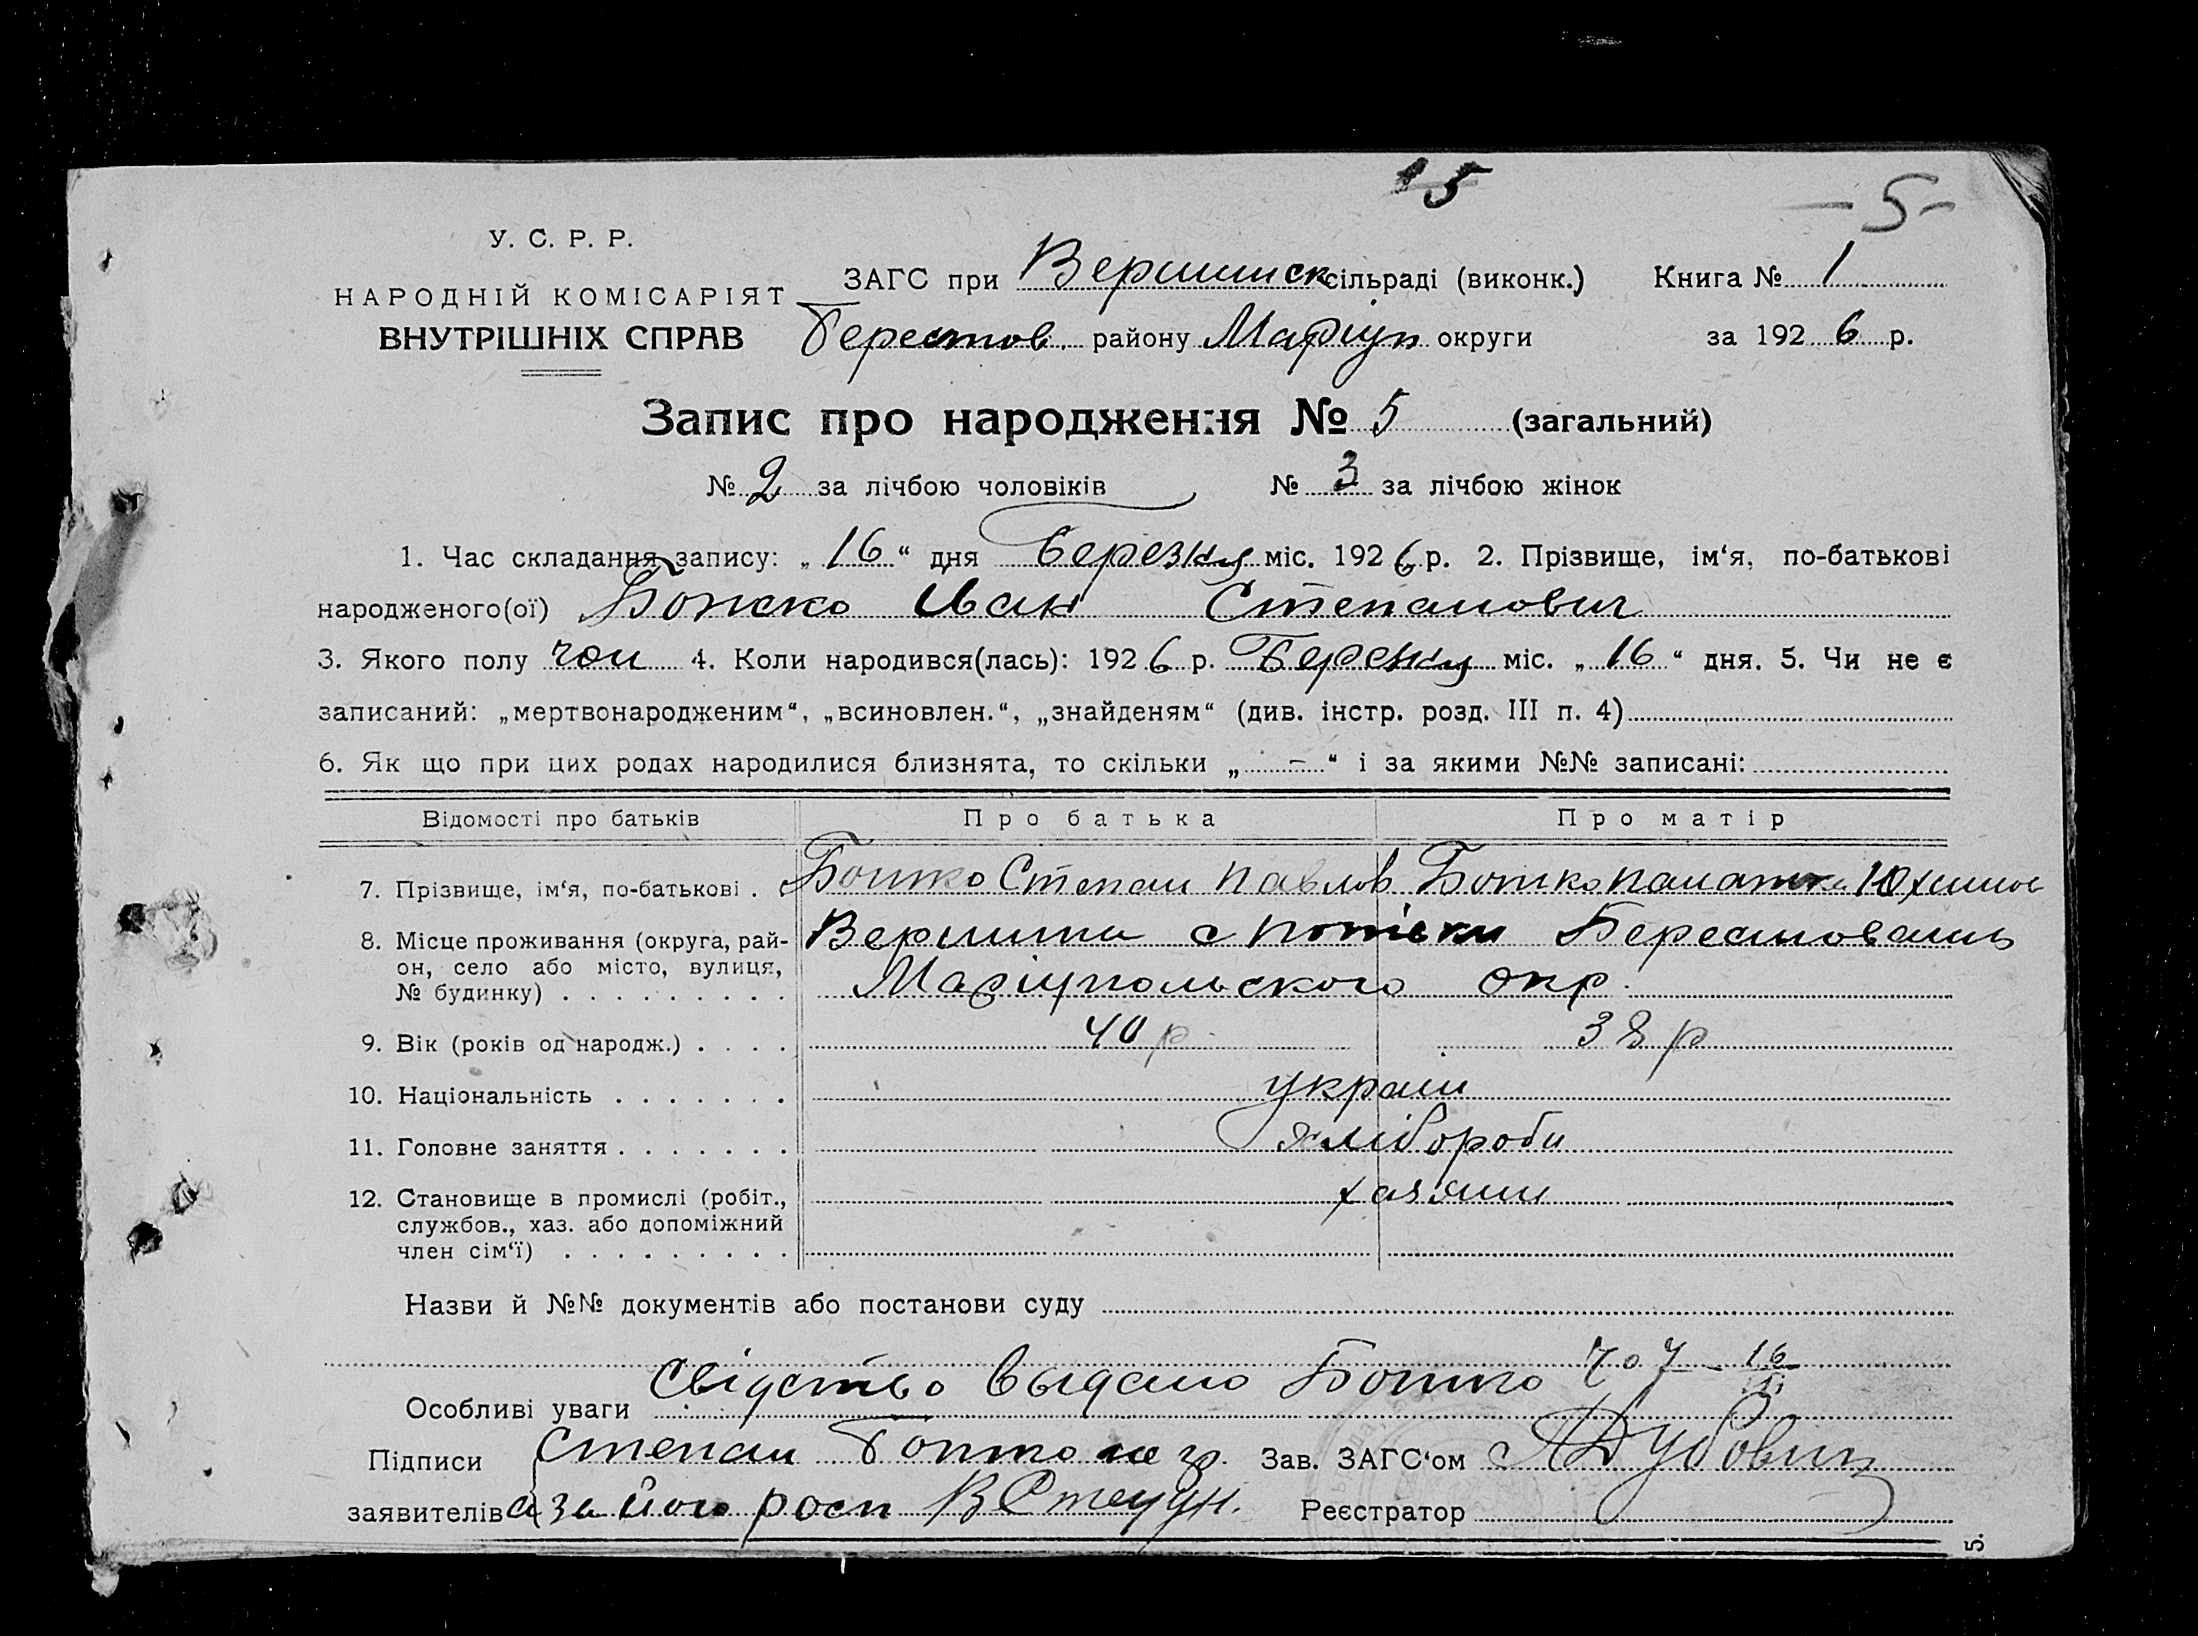 5
- 5 -
У. С. Р. Р.
НАРОДНІЙ КОМІСАРІЯТ
ВНУТРІШНІХ СПРАВ
ЗАГС при Вершинск сільраді (виконк.) Книга № 1
Берестов. району Маріуп округи за 1926 р.
Запис про народження № 5 (загальний)
№ 2 за лічбою чоловіків № 3 за лічбою жінок
1. Час складання запису: „16“ дня березня міс. 1926 р. 2. Прізвище, ім‘я, по-батькові
народженого(ої) Іван Степанович
3. Якого полу чол 4. Коли народився(лась): 1926 р. Березня міс. „16“ дня. 5. Чи не є
записаний: „мертвонародженим“, „всиновлен.“, „знайденям“ (див. інстр. розд. III п. 4)
6. Як що при цих родах народилися близнята, то скільки „-“ і за якими №№ записані:
Відомості про батьків Про батька Про матір
7. Прізвище, ім‘я, по-батькові . Степан Павлов
8. Місце проживання (округа, рай-
он, село або місто, вулиця,
№ будинку) . . . . . . . . . Маріупольского окр.
9. Вік (років од народж.) . . . . 40 р. 38 р
10. Національність . . . . . . . україн
11. Головне заняття . . . . . . . хлібороби
12. Становище в промислі (робіт.,
службов., хаз. або допоміжний
член сім‘ї) . . . . . . . . . хазяини
Назви й №№ документів або постанови суду
Особливі уваги Свідство выдано
Підписи Степан не гр. Зав. ЗАГС‘ом АДубовик
заявителів а за його росп
Реєстратор
5.